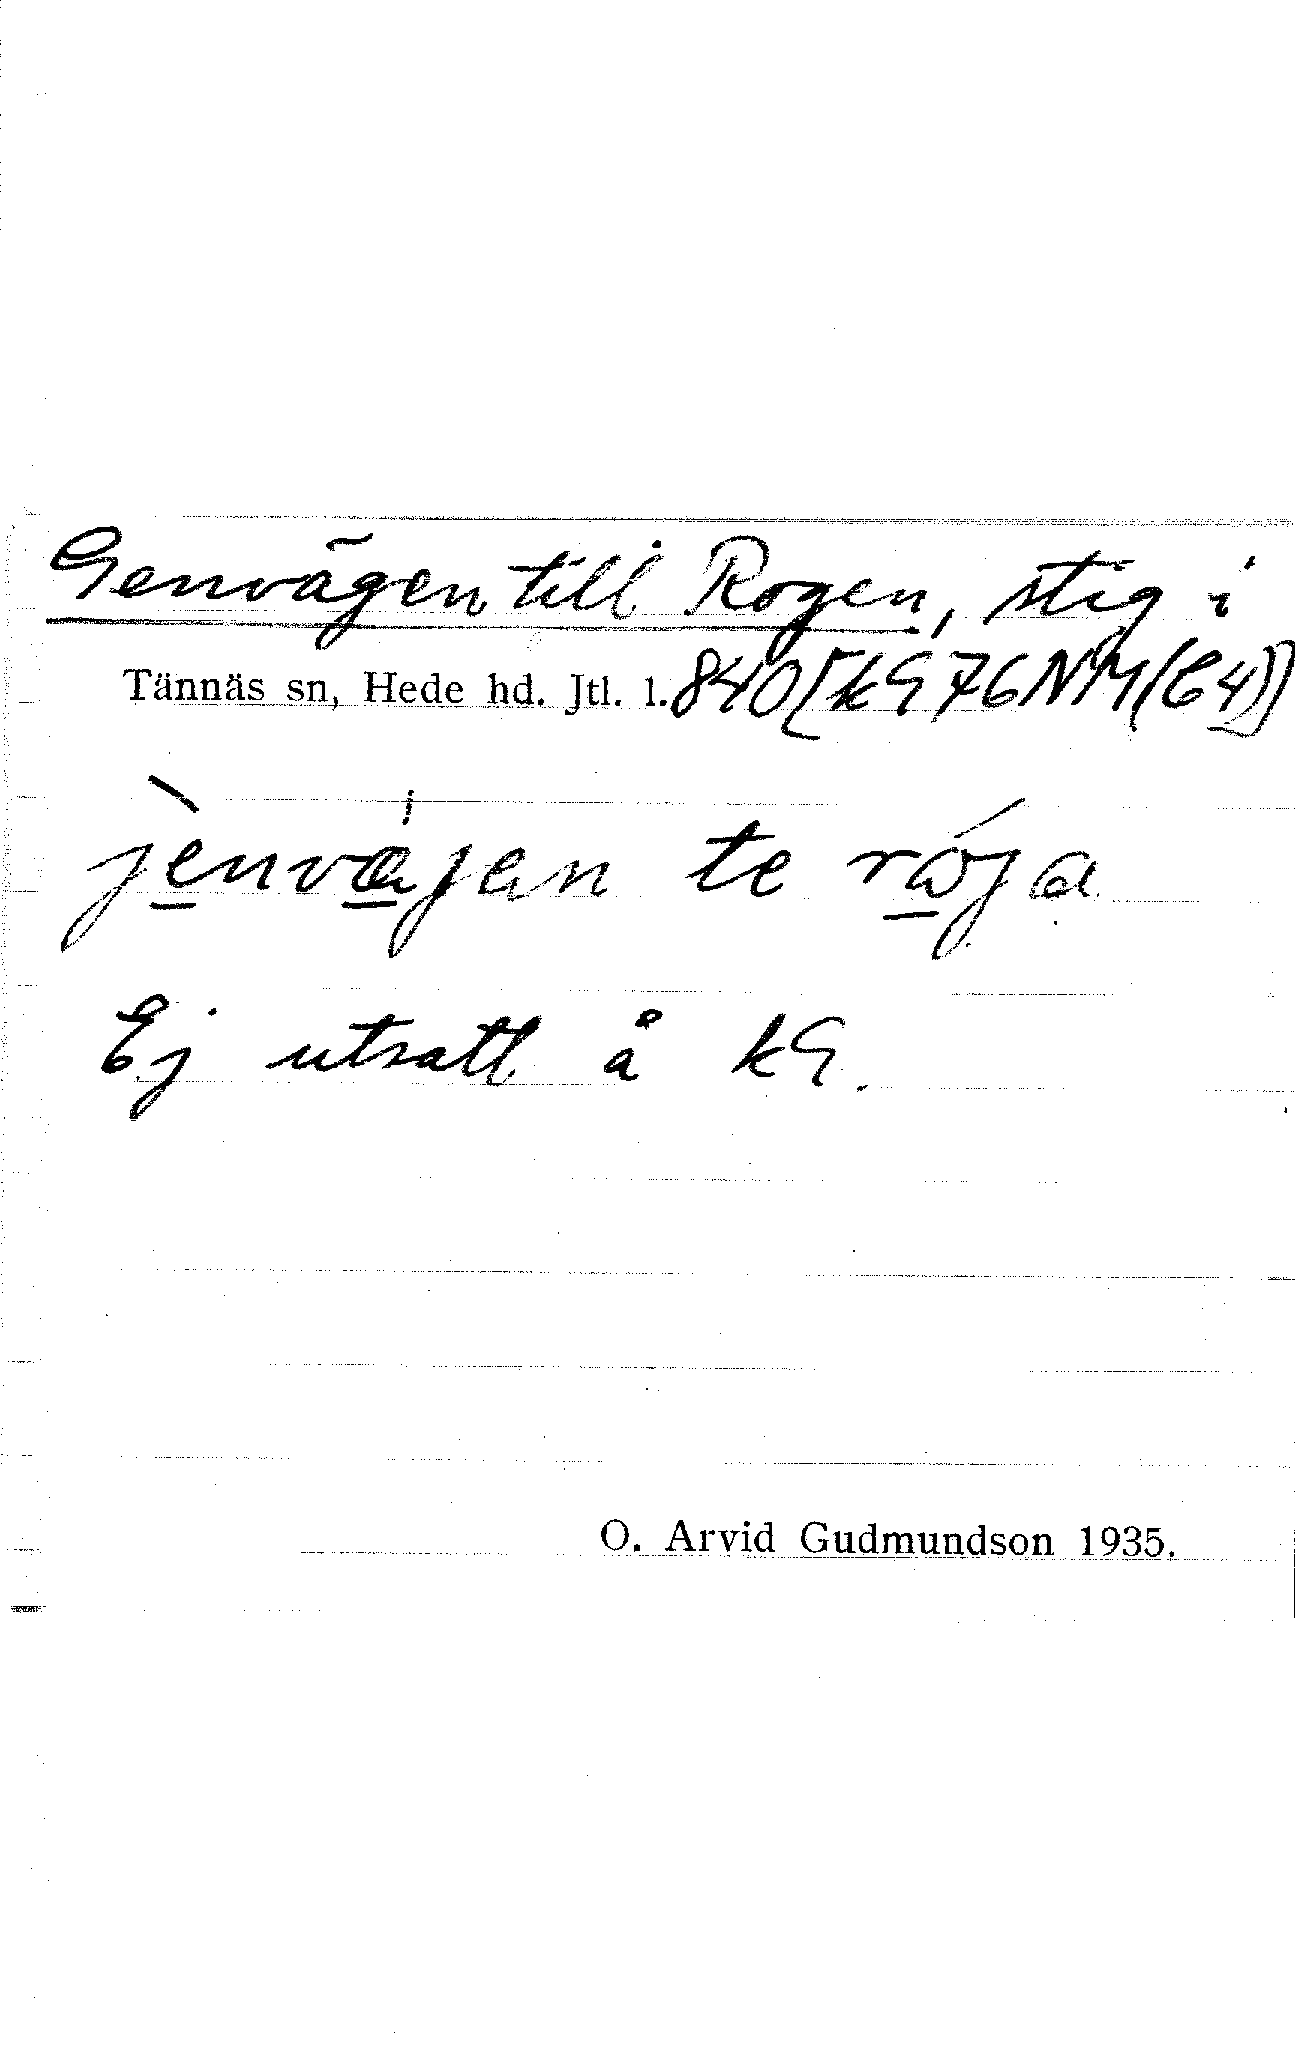 Genvägen till Rogen, stig i
Tännäs sn, Hede hd. Jtl. l. 840[kG 76NM(C4)]
jènvǽjen te rója
Ej utsatt å kG.
O. Arvid Gudmundson 1935.